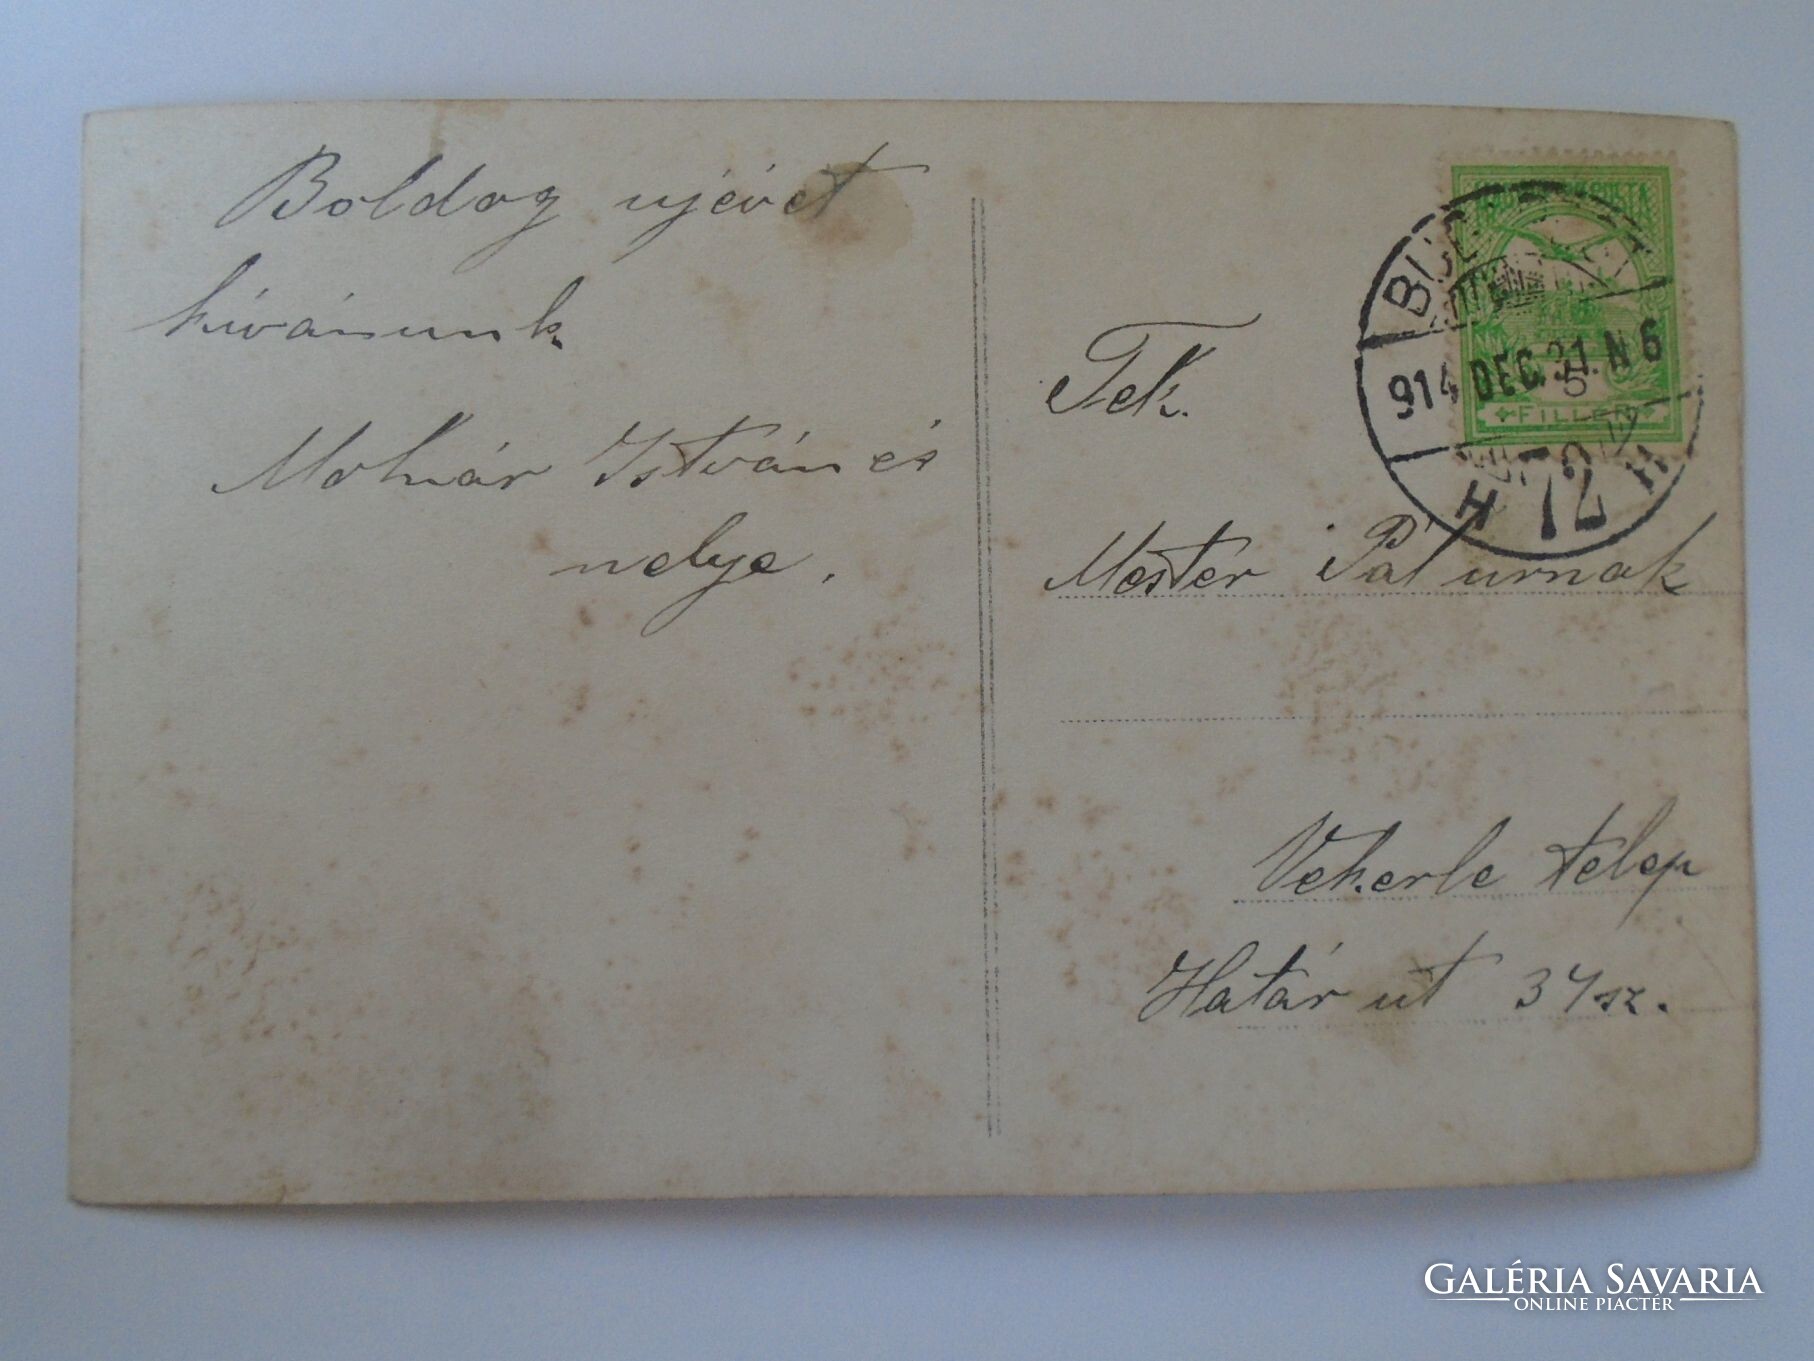 Boldog ujévet
kívánunk.
Molnár István és
nelye.
Tek.
Mester Pál urnak
Vekerle telep
Határ ut 34 sz.
914 DEC. 31. N 6
5
FILLÉR
72
GALÉRIA SAVARIA
ONLINE PIACTÉR